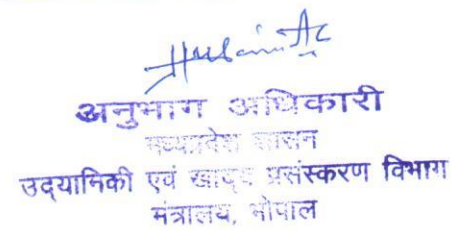 अनुभाग अधिकारी
मध्यप्रदेश शासन
उद्यानिकी एवं खाद्य प्रसंस्करण विभाग
मंत्रालय, भोपाल